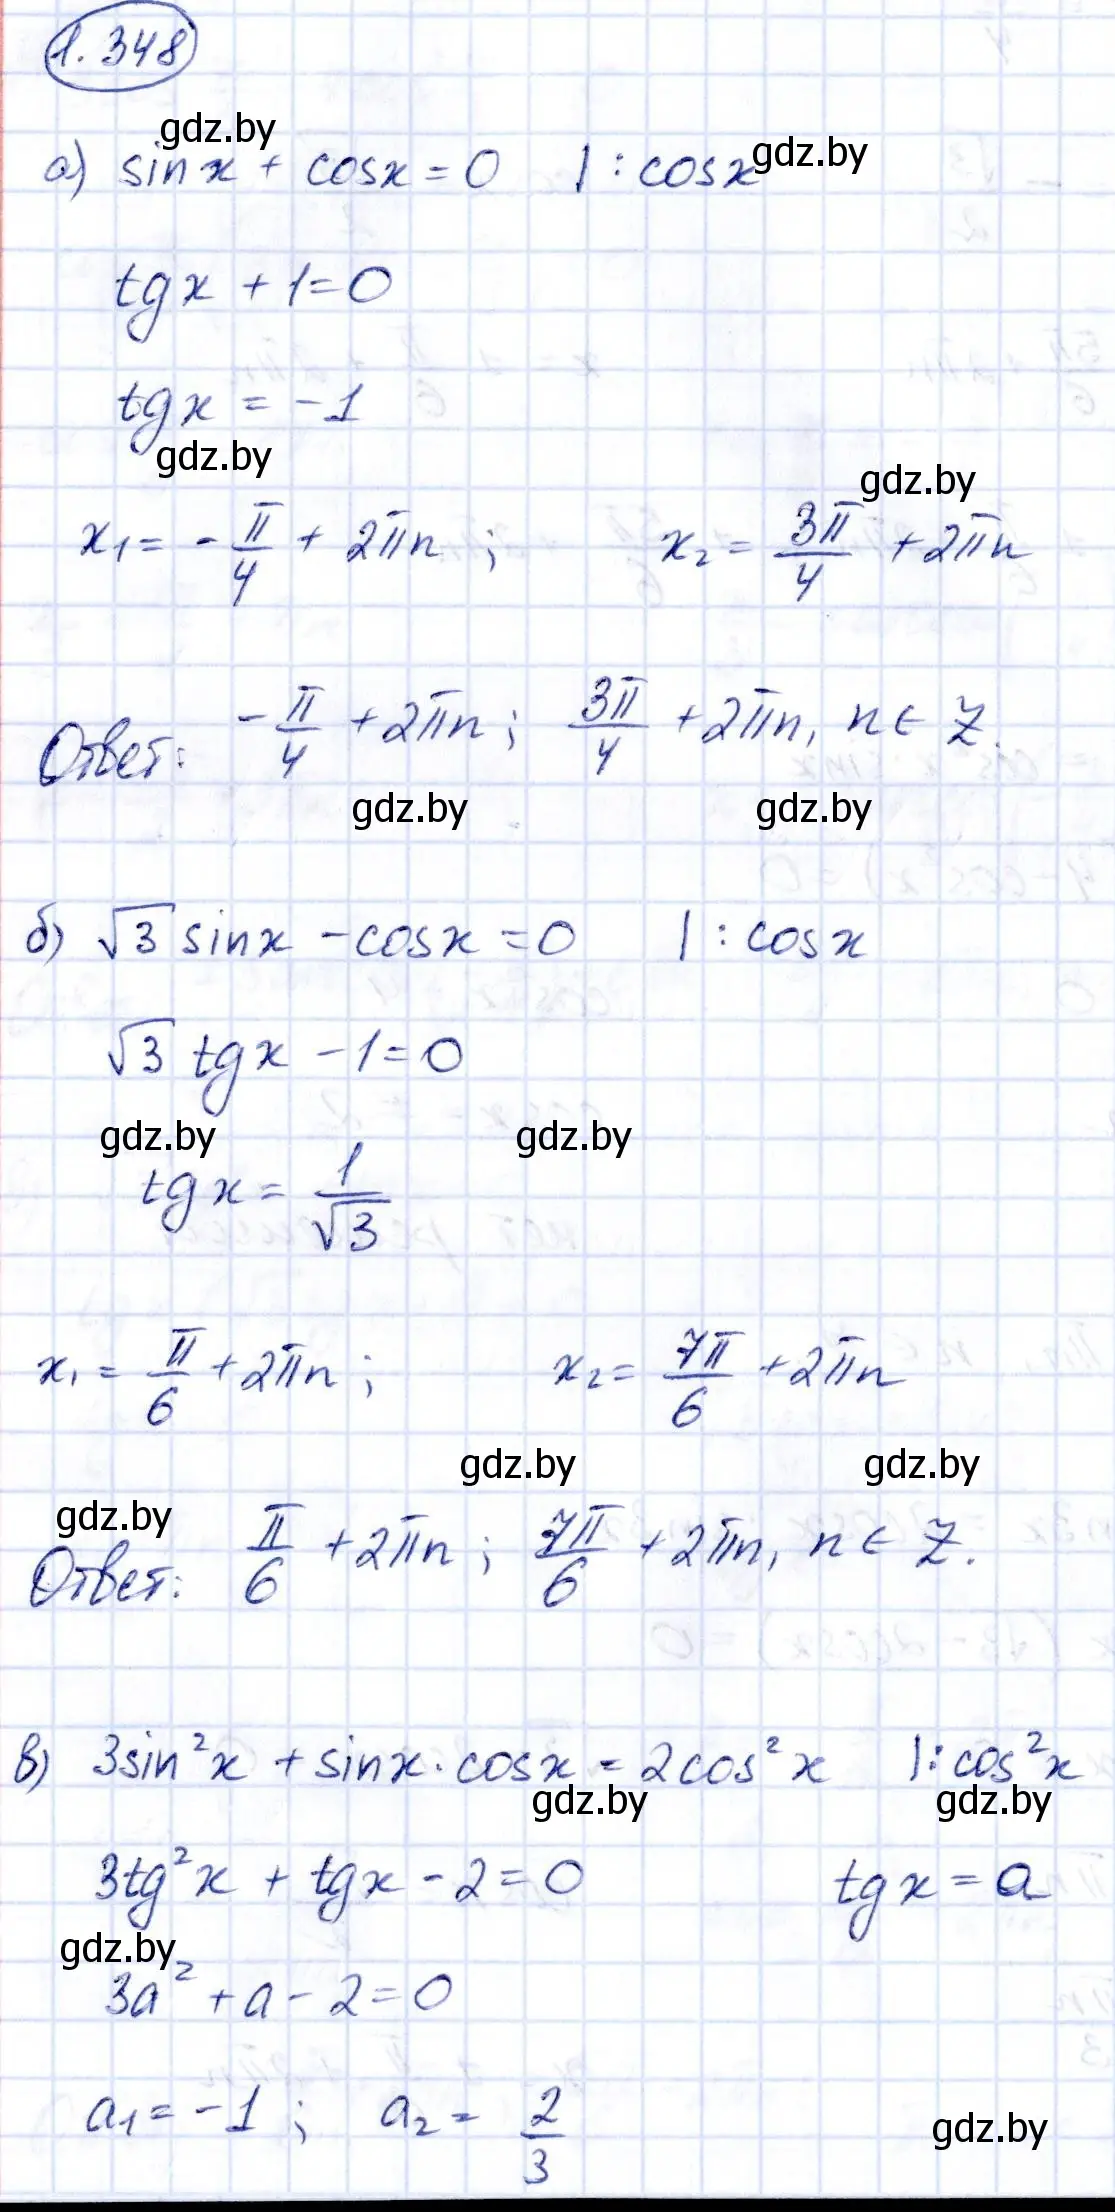 1.348
gdz.by
а) sinx + cosx = 0 | : cosx gdz.by
tgx + 1 = 0
tgx = -1
gdz.by gdz.by
x₁ = -π/4 + 2πn ; x₂ = 3π/4 + 2πn
Ответ: -π/4 + 2πn ; 3π/4 + 2πn, n ∈ Z.
gdz.by gdz.by
б) √3 sinx - cosx = 0 | : cosx
√3 tgx - 1 = 0
gdz.by gdz.by
tgx = 1/√3
x₁ = π/6 + 2πn ; x₂ = 7π/6 + 2πn
gdz.by gdz.by
gdz.by
Ответ: π/6 + 2πn ; 7π/6 + 2πn, n ∈ Z.
в) 3sin²x + sinx · cosx = 2cos²x | : cos²x
gdz.by gdz.by
3tg²x + tgx - 2 = 0 tgx = a
gdz.by
3a² + a - 2 = 0
a₁ = -1 ; a₂ = 2/3 gdz.by